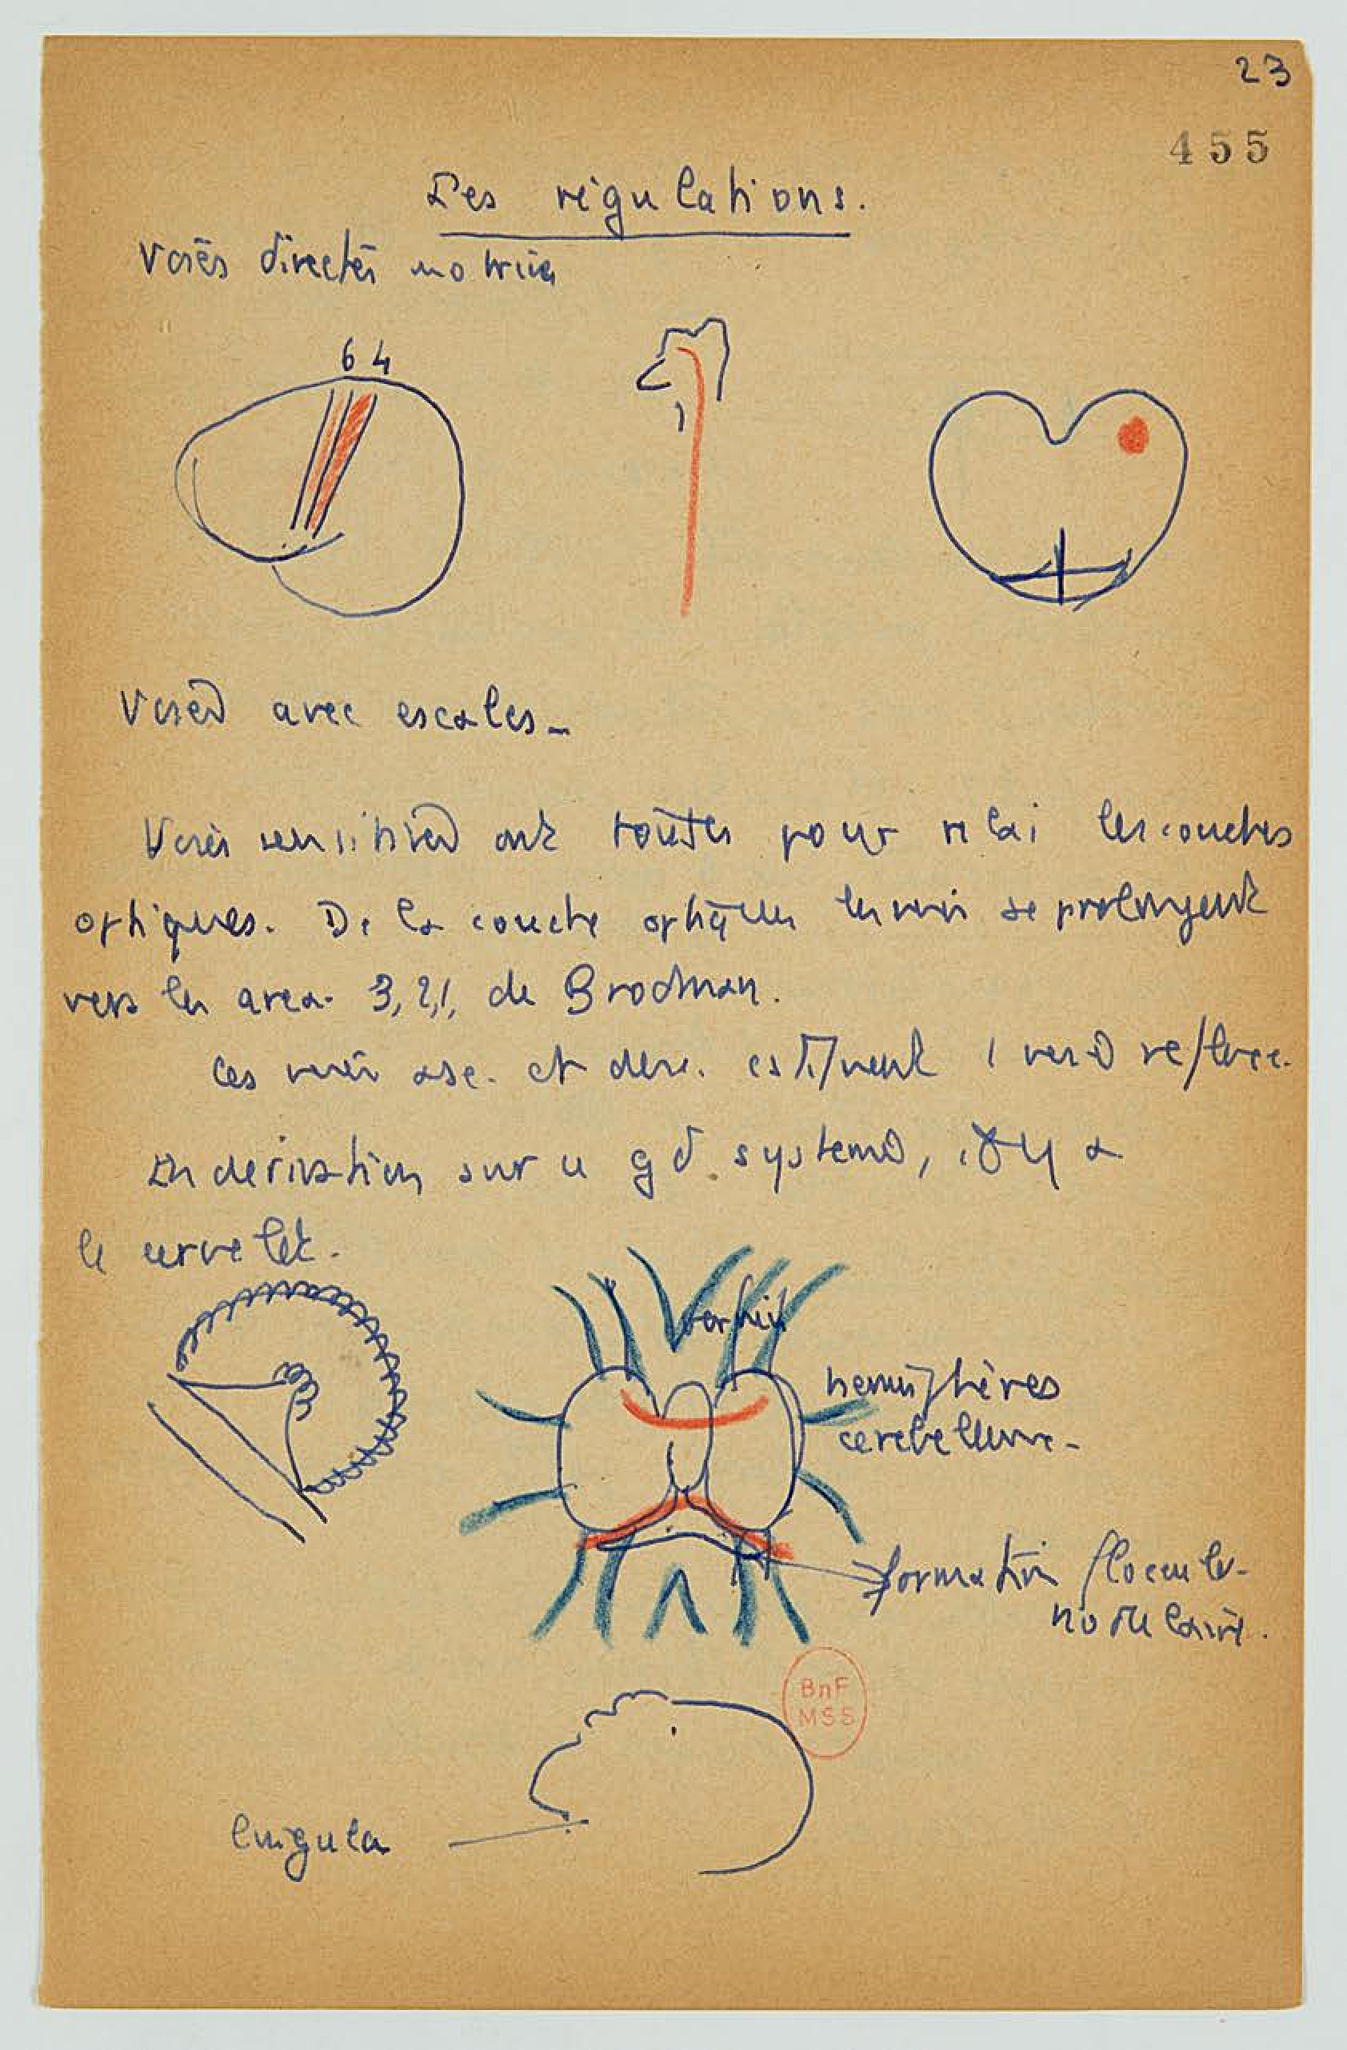 23
455
Les régulations.
Voies directes motrices
6 4
Voies avec escales
Voies sensitives ont toutes pour relai les couches
optiques. De la couche optique les voies se prolongent
vers les area 3,2,1, de Brodman.
Les voies asc. et desc.
En dérivation sur ce gd. système, il y a
le cervelet.
vermis
hémisphères
cerebelleux
formation floculo-
nodulaire.
BnF
MSS
lingula